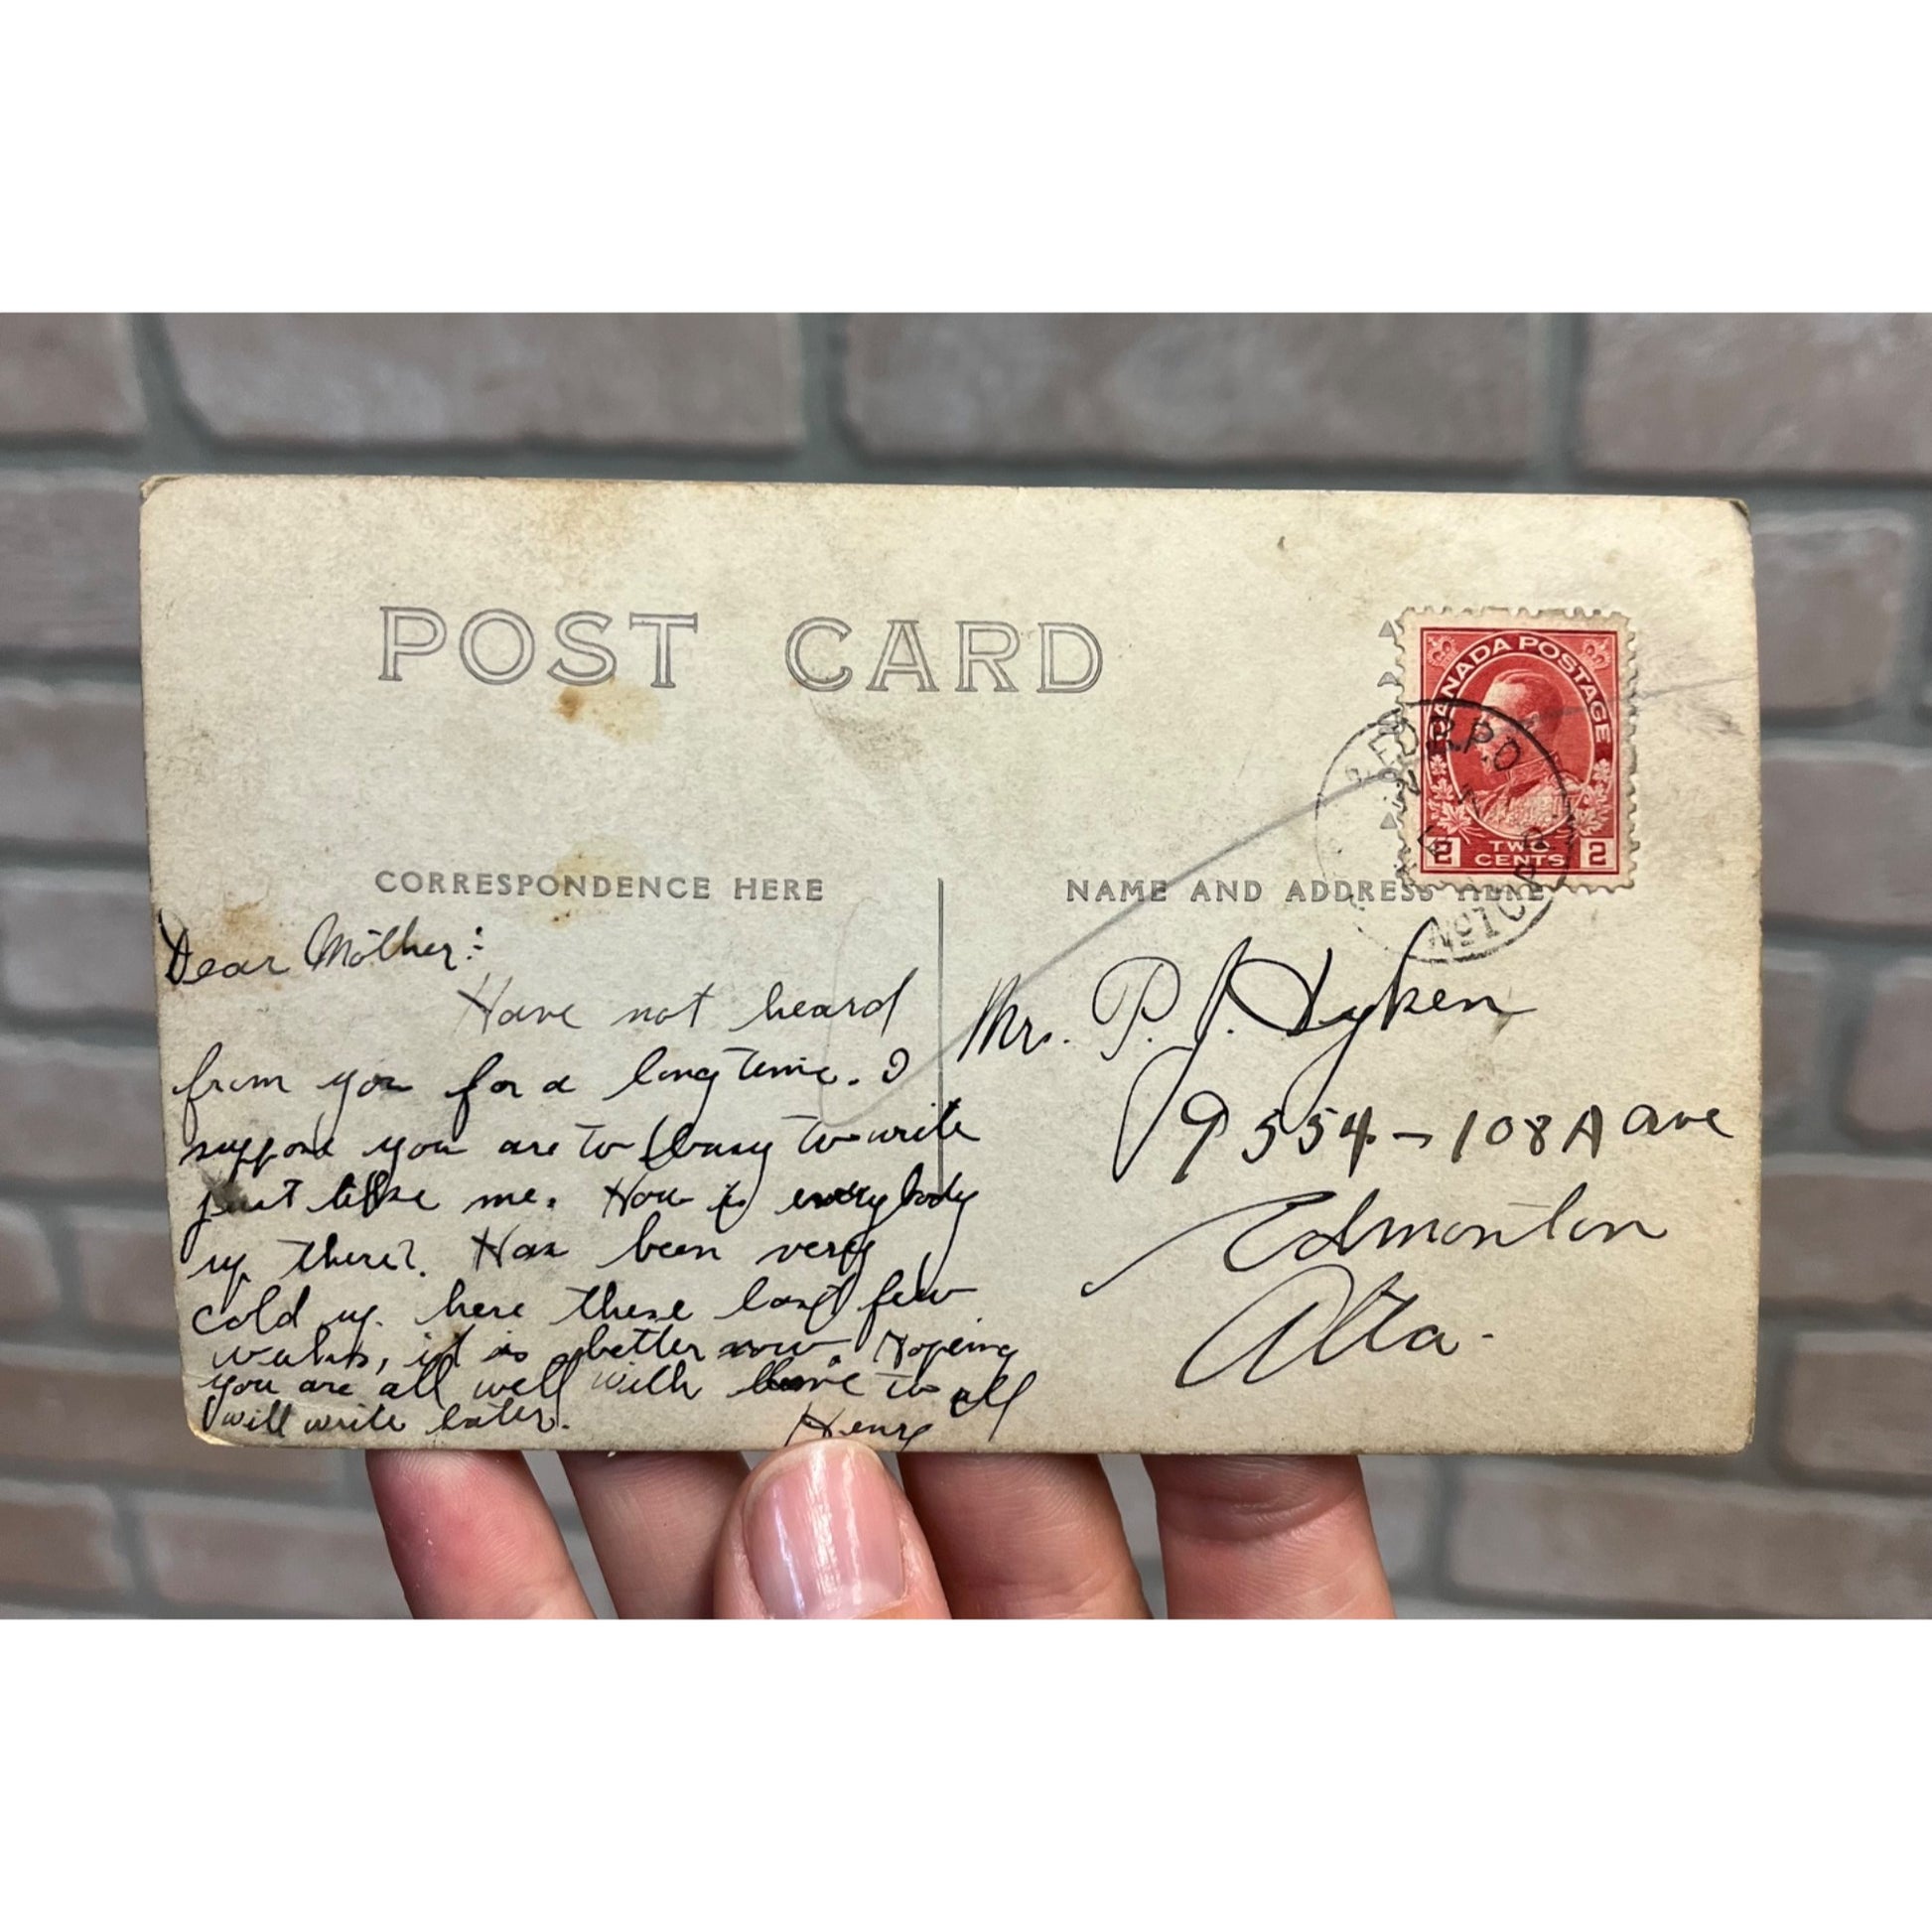 POST CARD
CANADA POSTAGE
2 TWO CENTS 2
R.P.O.
No 10
CORRESPONDENCE HERE
NAME AND ADDRESS HERE
Dear Mother:
Have not heard
from you for a long time. I
suppose you are to busy to write
just like me. How is everybody
up there? Has been very
cold up here these last few
weeks, it is better now. Hopeing
you are all well with love to all
will write later.
Henry
Mrs. P. J. Dyken
9554-108A ave
Edmonton
Alta.